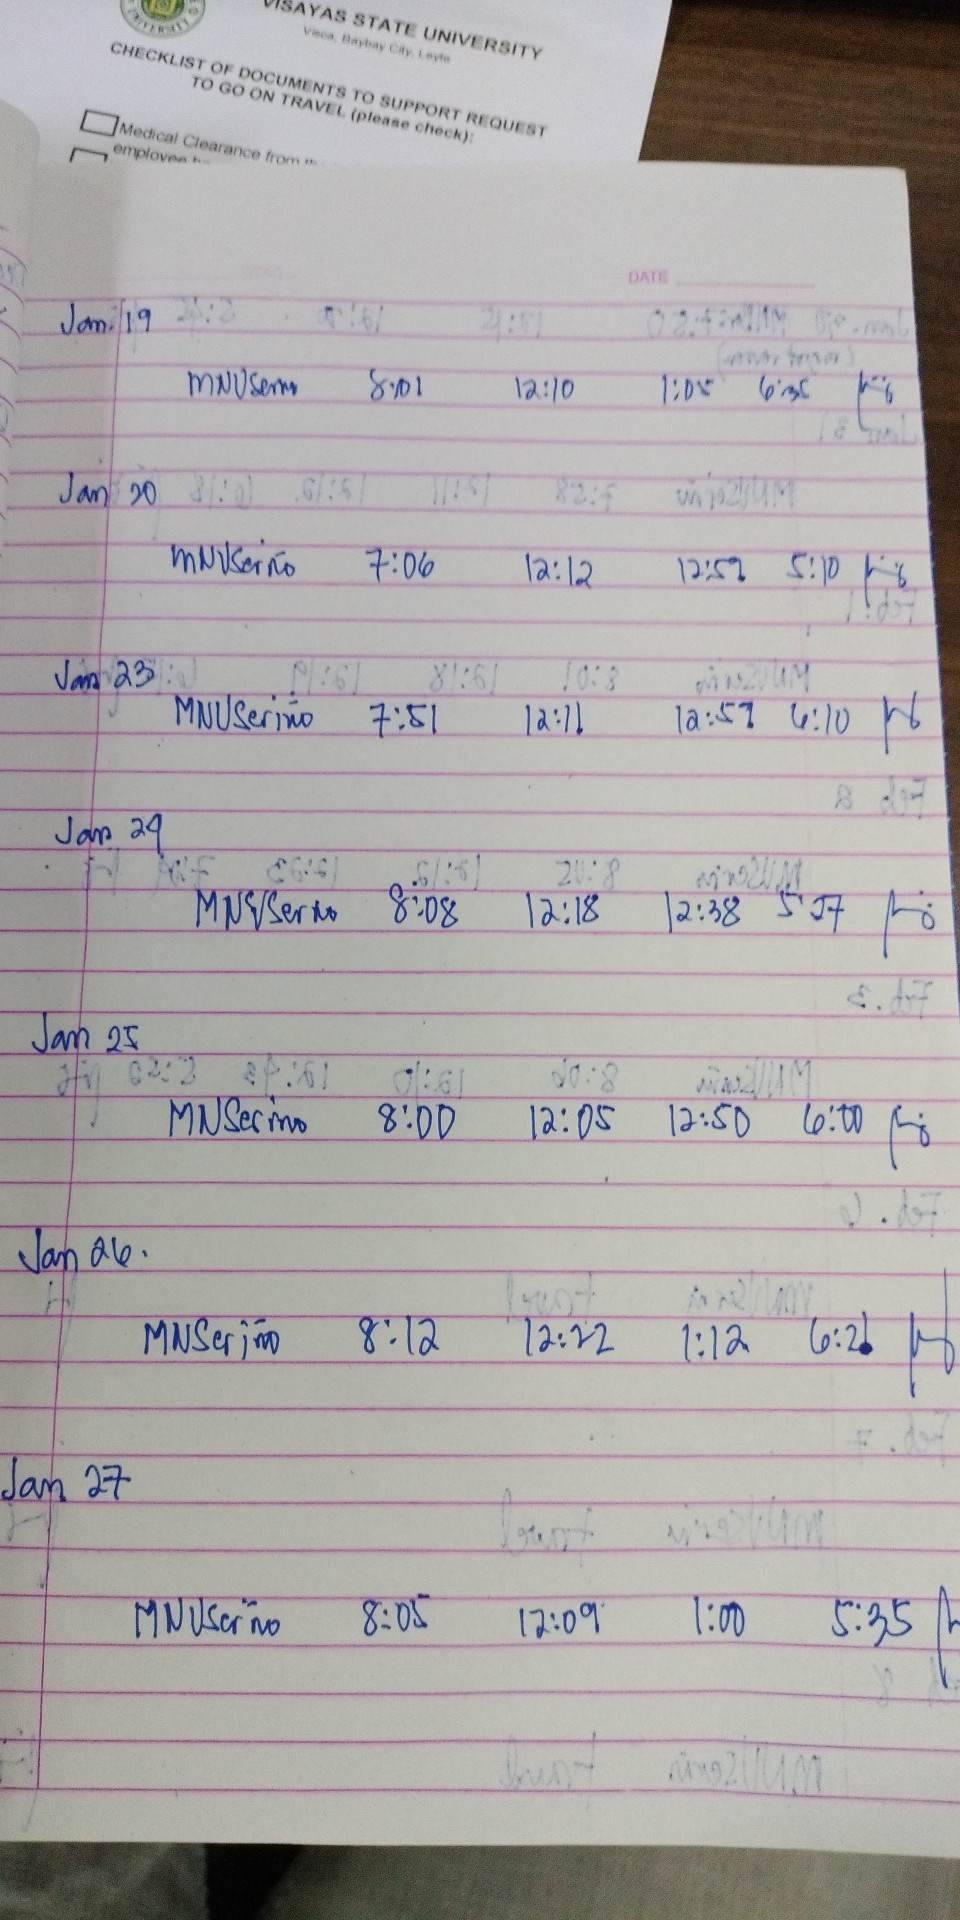 VISAYAS STATE UNIVERSITY
Visca, Baybay City, Leyte
CHECKLIST OF DOCUMENTS TO SUPPORT REQUEST
TO GO ON TRAVEL (please check):
Medical Clearance from
DATE
Jan. 19
MNUSerino 8:01 12:10 1:05 6:35
Jan 20
MNUSeriño 7:06 12:12 12:52 5:10
Jan 23
MNUSeriño 7:51 12:11 12:57 6:10
Jan 24
MNUSeriño 8:08 12:18 12:38
Jan 25
MNSeriño 8:00 12:05 12:50 6:00
Jan 26.
MNSeriño 8:12 12:22 1:12 6:26
Jan 27
MNUSeriño 8:05 12:09 1:00 5:35